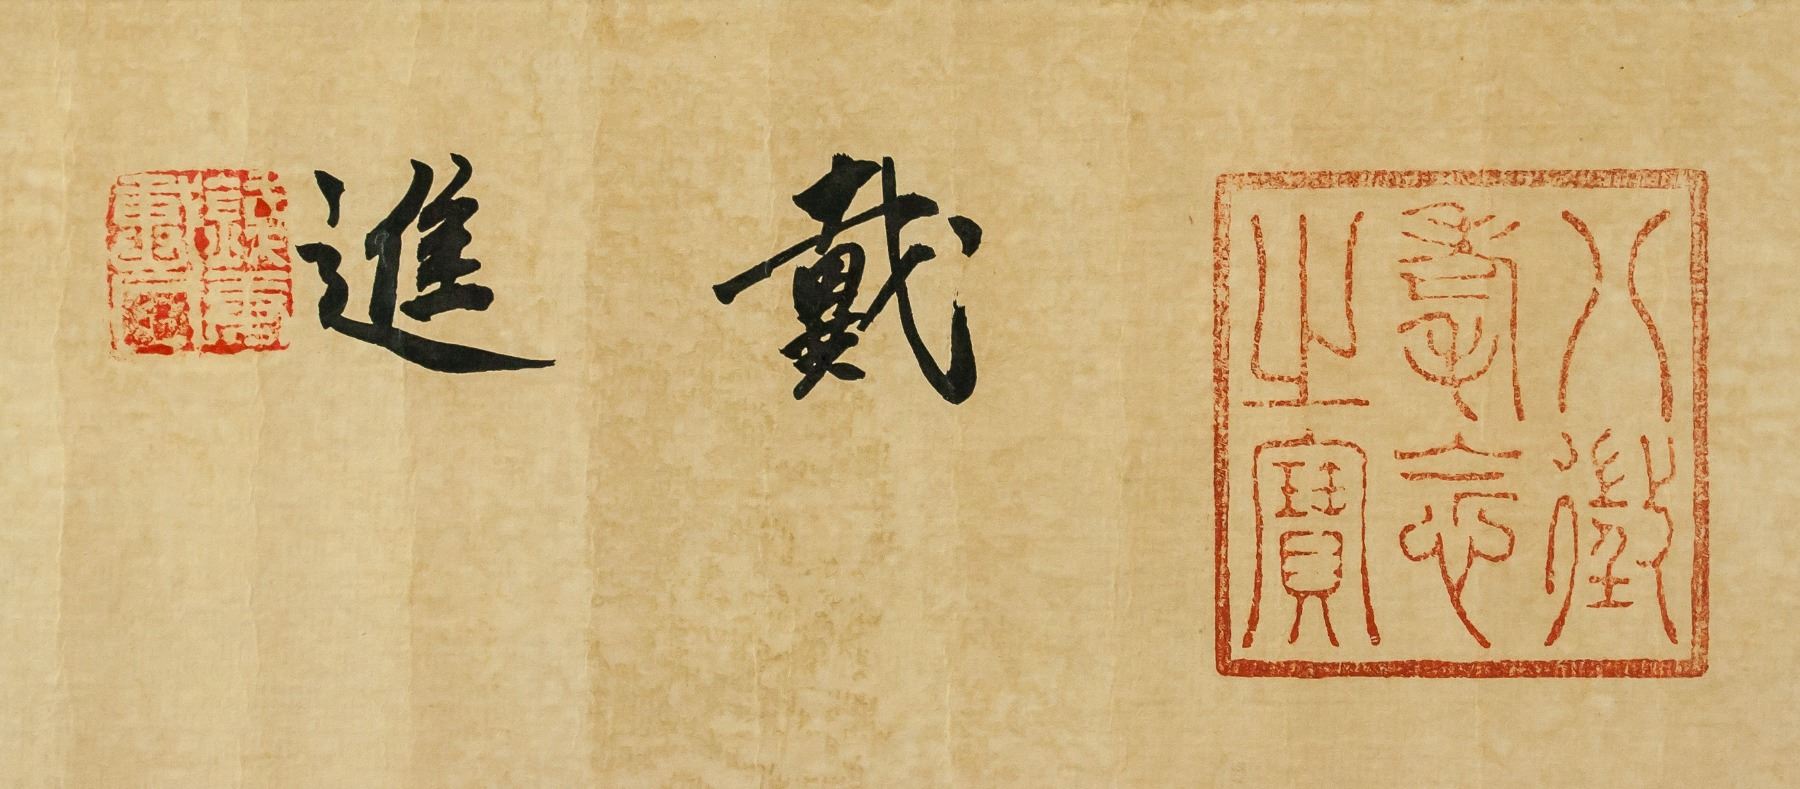 八徵
耄念
之寶
戴進